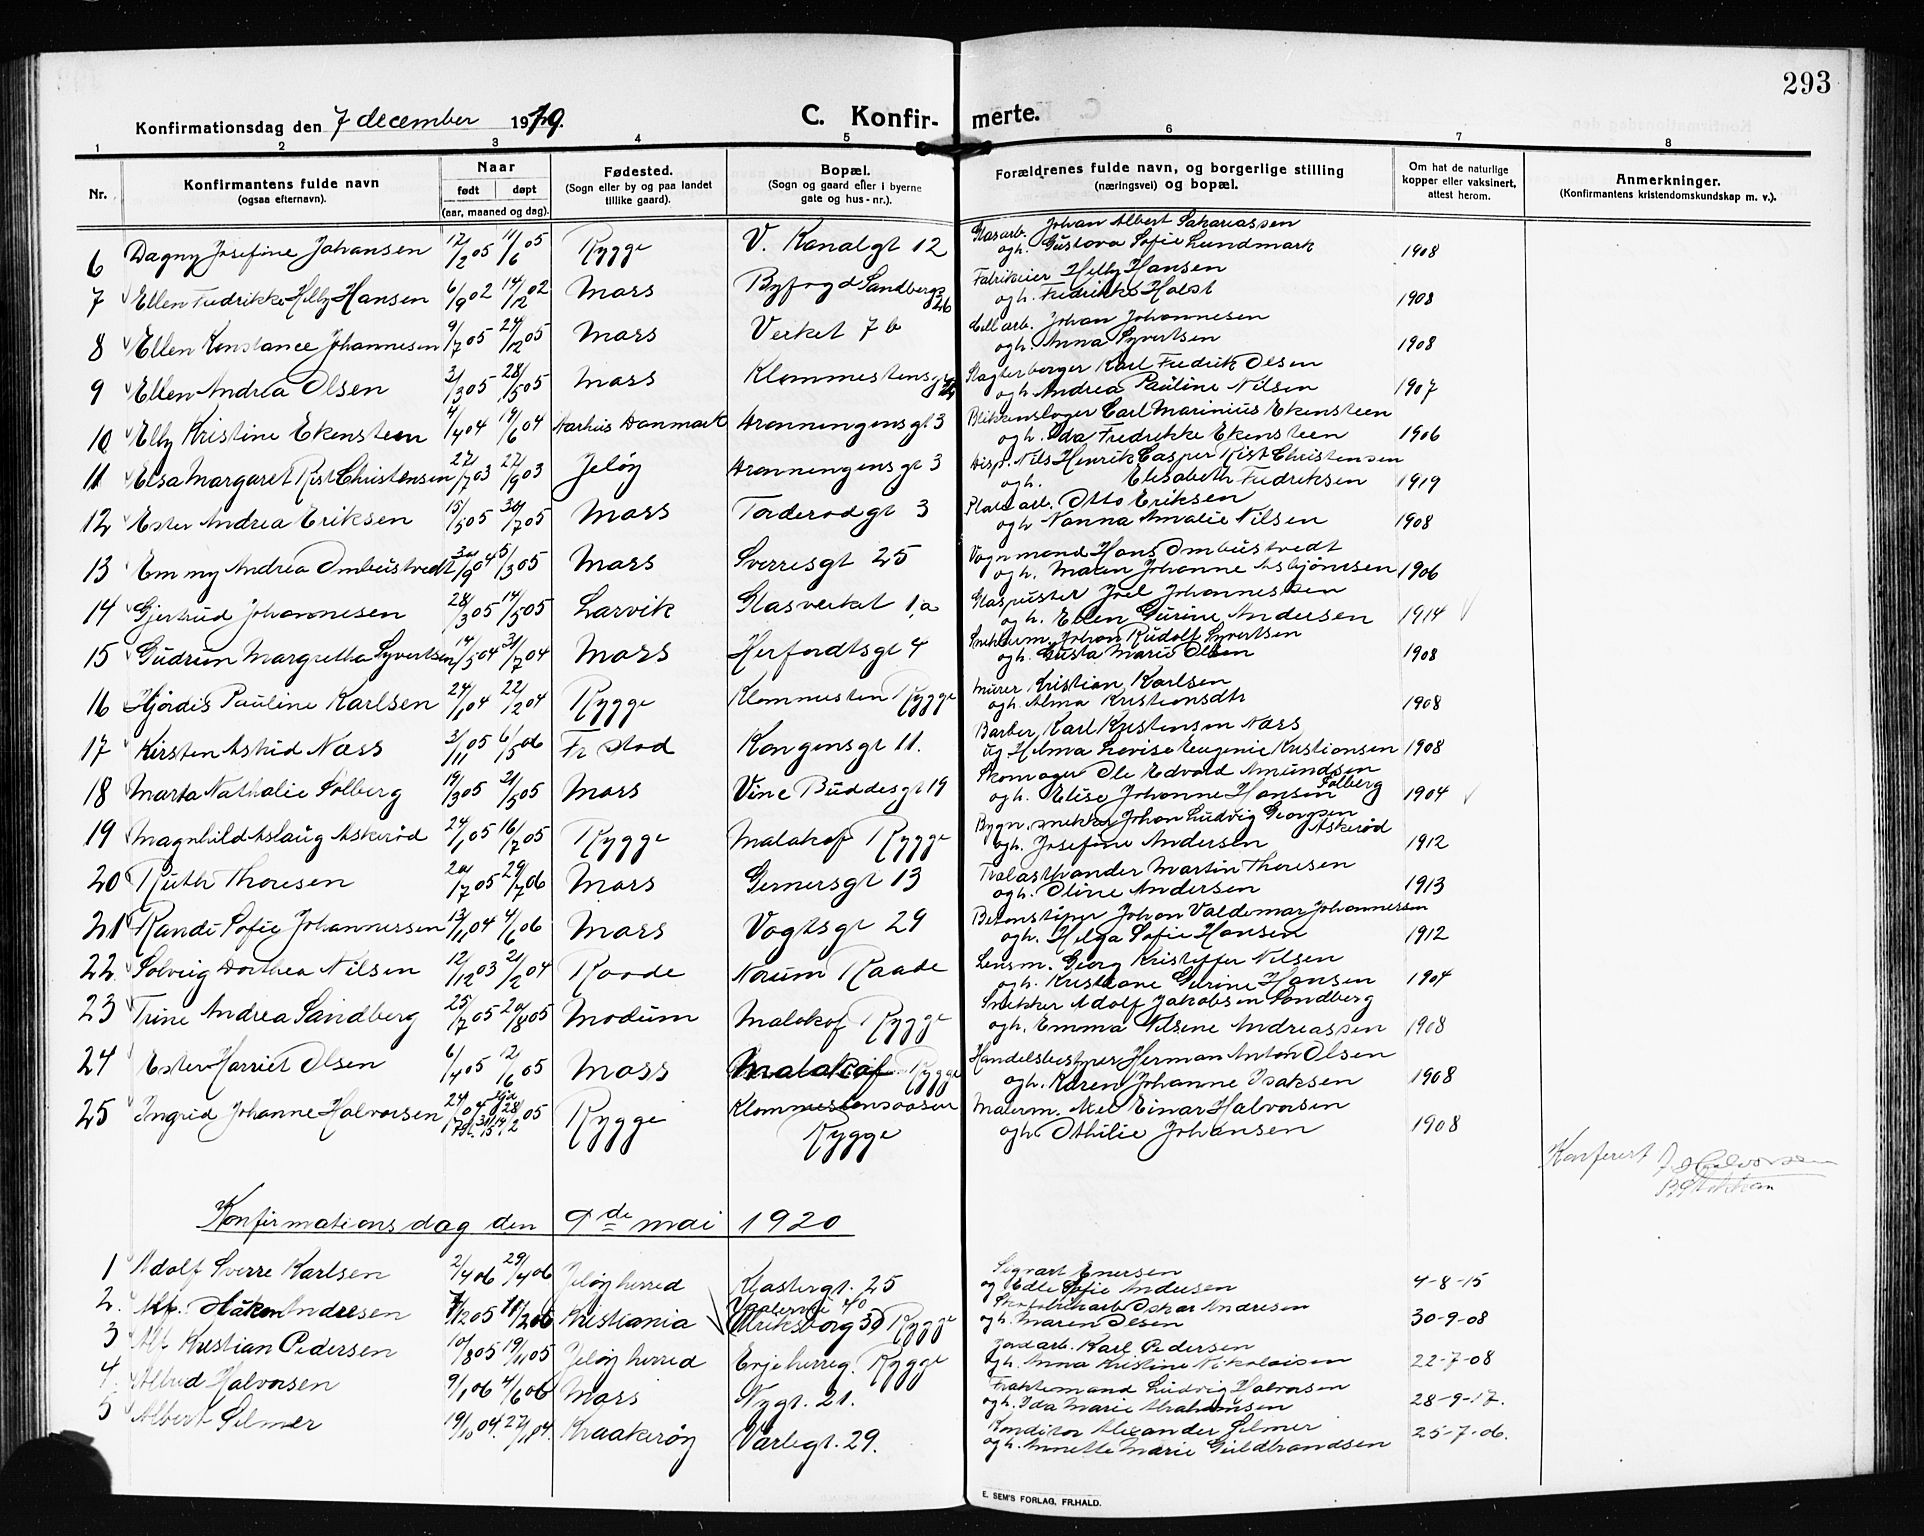 293
Konfirmationsdag den 7 december 1919.
C. Konfir- merte.
1 2 3 4 5 6 7 8
Nr. Konfirmantens fulde navn (ogsaa efternavn). Naar født døpt (aar, maaned og dag). Fødested. (Sogn eller by og paa landet tillike gaard). Bopæl. (Sogn og gaard eller i byerne gate og hus-nr.). Forældrenes fulde navn, og borgerlige stilling (næringsvei) og bopæl. Om hat de naturlige kopper eller vaksinert, attest herom. Anmerkninger. (Konfirmantens kristendomskundskap m. v.).
6 Dagny Josefine Johansen 12/2 05 11/6 05 Rygge V. Kanalgt 12 Glasarb. Johan Albert Sakariassen
ogh. Gustava Sofie Lundmark 1908
7 Ellen Fredrikke Helly Hansen 6/9 02 14/12 02 Moss Byfogd Sandbergs 26 Fabrikeier Helly Hansen
ogh. Fredrikke Holst 1908
8 Ellen Konstance Johannesen 9/7 05 24/12 05 Moss Verket 7 b Cell arb. Johan Johannesen
ogh. Anna Syvertsen 1908
9 Ellen Andrea Olsen 3/3 05 28/5 05 Moss Klommestensgt Slagterborger Karl Fredrik Olsen
ogh Andrea Pauline Nilsen 1907
10 Elly Kristine Ekensteen 4/4 04 19/6 04 Aarhus Danmark Kronningensgt 3 Blikkenslager Carl Marinius Ekensteen
ogh. Ida Fredrikke Ekensteen 1906
11 Elsa Margaret Rist Christensen 27/7 03 27/9 03 Jeløy Kronningensgt 3 Disp. Nils Henrik Casper Rist Christensen
ogh. Elisabeth Fredriksen 1919
12 Ester Andrea Eriksen 15/5 05 30/7 05 Moss Torderodgt 3 Plads arb. Otto Eriksen
ogh Nanna Amalie Nilsen 1908
13 Emmy Andrea Ombustvedt 30/9 04 5/3 05 Moss Sverresgt 25 Vognmand Hans Ombustvedt
ogh. Maren Johanne Asbjørnsen 1906
14 Gjertrud Johannesen 28/3 05 14/5 05 Larvik Glasverket 1.a Glaspuster Joel Johannessen
ogh. Ellen Gurine Andersen 1914
15 Gudrun Margretha Syvertsen 14/5 04 31/7 04 Moss Herfordtsgt 4 Snekkerm. Johan Rudolf Syvertsen
ogh. Gusta Marie Olsen 1908
16 Hjørdis Pauline Karlsen 24/1 04 22/2 04 Rygge Klommesten Rygge Murer Kristian Karlsen
ogh. Alma Kristiansdtr 1908
17 Kirsten Astrid Næss 3/11 05 6/5 06 Fr stad Kongensgt 11. Barber Karl Kristensen Næss
ug. Helma Lovise Eugenie Kristiansen 1908
18 Marta Nathalie Solberg 19/3 05 21/5 05 Moss Vine Buddesgt 19 Skomager Ole Edvard Amundsen
ogh. Elise Johanne Hansen Solberg 1904
19 Magnhild Aslaug Askerød 24/1 05 16/7 05 Rygge Malakof Rygge Bygn. snekker Johan Ludvig Georgsen Askerød
ogh. Josefine Andersen 1912
20 Ruth Thoresen 20/7 05 29/7 06 Moss Gernersgt 13 Trælasthandler Martin Thoresen
ogh. Oline Andersen 1913
21 Randi Sofie Johannessen 13/11 04 4/6 06 Moss Vogtsgt 29 Betonstøper Johan Valdemar Johannessen
ogh. Helga Sofie Hansen 1912
22. Solveig Dorthea Nilsen 12/12 03 21/2 04 Raade Norum Raade Lensm. Georg Kristoffer Nilsen
ogh. Kristiane Gurine Hansen 1904
23 Trine Andrea Sandberg 25/7 05 20/8 05 Modum Malakof Rygge Snekker Adolf Jakobsen Sandberg
ogh. Emma Nilsene Andreassen 1908
24 Ester Harriet Olsen 6/4 05 12/6 05 Moss Malakof Rygge Handelsbestyrer Herman Anton Olsen
ogh. Karen Johanne Isaksen 1908
25 Ingrid Johanne Halvorsen 05 Rygge Klommestensaasen
Rygge Malerm. Axel Einar Halvorsen
ogh. Othilie Johansen 1908
Konferert Halvorsen
Konfirmationsdag den 9de mai 1920
1 Adolf Sverre Karlsen 2/4 06 29/4 06 Jeløy herred Klostergt. 25 Sigvart Enersen
og Edle Sofie Andersen 4-8-15
2. Alf. Håkon Andresen 7/12 05 Kristiania Ulriksborg 30 Rygge Skofabrikarb Oskar Andresen
ogh. Maren Olsen 30-9-08
3 Alf Kristian Pedersen 10/8 05 19/11 05 Jeløy herred Erjeherreg. Rygge Jordarb. Karl Pedersen
ogh. Anna Kristine Nikolaisen 22-7-08
4. Alfred Halvorsen 9/1 06 4/6 06 Moss Nygt. 21. Fraktemand Ludvig Halvorsen
ogh. Ida Marie Abrahamsen 28-9-17.
5 Albert Selmer 19/10 04. Kraakerøy Varlegt. 29. Konditor Alexander Selmer
ogh. Annette Marie Guldbrandsen 25-7-06.
E. SEM'S FORLAG, FR.HALD.